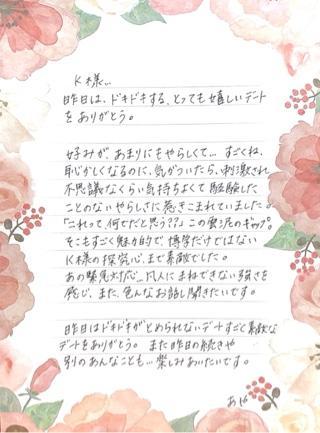 K様...
昨日は、ドキドキする、とっても嬉しいデート
をありがとう。
好みが、あまりにもやらしくて... すごくね、
恥かしくなるのに、気がついたら、刺激され
不思議なくらい気持ちよくて 経験した
ことのないやらしさに 惹きこまれていました。
「これって、何でだと思う??」この雲泥のギャップ。
そこもすごく魅力的で、博学だけではない
K様の探究心、まで素敵でした。
あの緊急対応... 凡人にまねできない強さを
感じ、また、色んなお話し聞きたいです。
昨日はドキドキがとめられないデートすごく素敵な
デートをありがとう。 また昨日の続きや
別のあんなことも... 楽しみあいたいです。